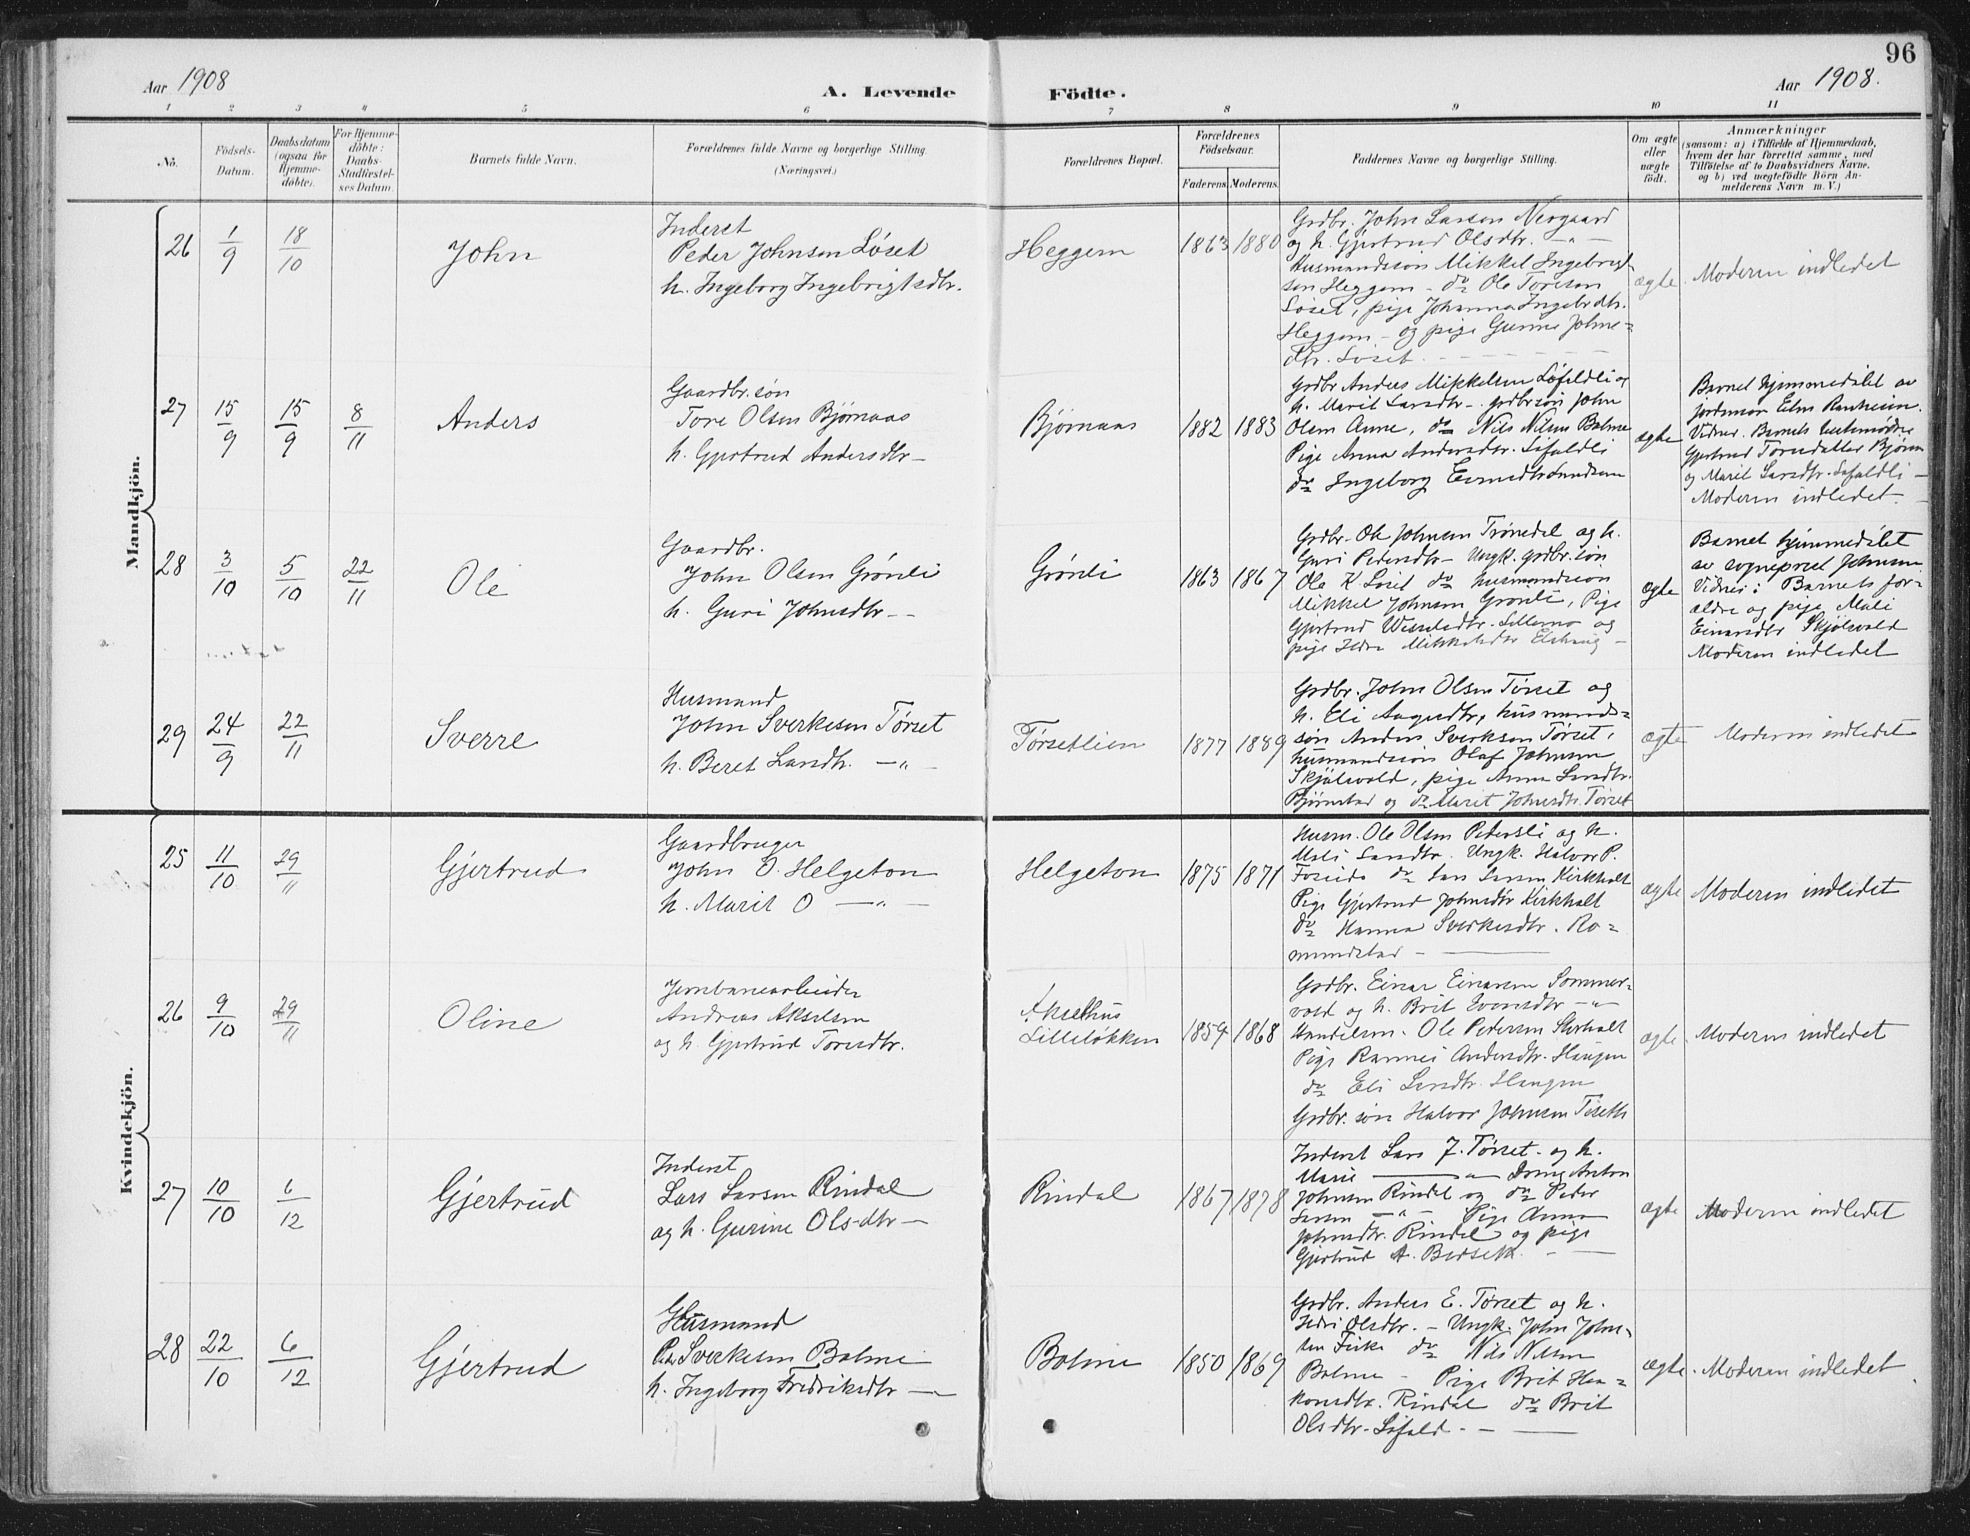 96
Aar 1908
A. Levende
Födte.
Aar 1908.
1 2 3 4 5 6 7 8 9 10 11
No.
Födsels-
Datum.
Daabsdatum
(ogsaa for
Hjemme-
döbte).
For Hjemme-
döbte:
Daabs-
Stadfæstel-
ses Datum.
Barnets fulde Navn.
Forældrenes fulde Navne og borgerlige Stilling.
(Næringsvei.)
Forældrenes Bopæl.
Forældrenes
Födselsaar.
Faderens. Moderens.
Faddernes Navne og borgerlige Stilling.
Om ægte
eller
uægte
födt.
Anmærkninger
(saasom: a) i Tilfælde af Hjemmedaab,
hvem der har forrettet samme, med
Tilföielse af to Daabsvidners Navne,
og b) ved uægtefödte Börn An-
melderens Navn m. V.)
Mandkjön.
26
1/9
18/10
John
Inderst
Peder Johnsen Løset
h. Ingeborg Ingebrigtsdtr.
Heggem
1863 1880
Grdbr. John Larsen Nergaard
og h. Gjertrud Olsdtr. -"-
Husmandssøn Mikkel Ingebrigt-
sen Heggem - do Ole Toresen
Løset, pige Johanna Ingebrdtr.
Heggem - og pige Gunne Johns-
dtr. Løset.
ægte
Moderen indledet
27
15/9
15/9
8/11
Anders
Gaardbr. søn
Tore Olsen Bjørnaas
h. Gjertrud Andersdtr -
Bjørnaas
1882 1883
Grdbr Anders Mikkelsen Løfaldli og
h. Marit Larsdtr - grdbrsøn John
Olsen Aune, do Nils Nilsen Bolme
Pige Anna Andersdtr. Løfaldli
do Ingeborg
ægte
Barnet hjemmedøbt av
jordmor Elen Ranheim.
Vidner. Barnets
Gjertrud Toresdatter Bjørnaas
og Marit Larsdtr. Løfaldli -
Moderen indledet.
28
3/10
5/10
22/11
Ole
Gaardbr.
John Olsen Grönli
h. Guri Johnsdtr -
Grönli
1863 1867
Grdbr. Ole Johnsen Trönsdal og h.
Guri Pedersdtr - Ungk. grdbr. søn
Ole K. Løset do husmandssøn
Mikkel Johnsen Grönli, Pige
Gjertrud Lillemo og
pige Mikkelsdtr
ægte
Barnet hjemmedöbt
av sogneprest Johnsen
Vidner: Barnets for-
ældre og pige Mali
Einarsdtr Skjölsvold
Moderen indledet
29
24/9
22/11
Sverre
Husmand
John Sverkesen Tørset
h. Beret Larsdtr. -"-
Tørsetlien
1877 1889
Grdbr. John Olsen Tørset og
h. Eli Aagesdtr, husmands-
søn Anders Sverksen Tørset,
husmandssøn Olaf Johnsen
Skjølsvold, pige Anna Larsdtr.
Bjørnstad og do Marit Johnsdtr. Tørset
ægte
Moderen indledet
Kvindekjön.
25
11/10
29/11
Gjertrud
Gaardbruger
John O. Helgeton
h. Marit O -"-
Helgeton
1875 1871
Husm. Ole Olsen Pedersli og h.
Mali Larsdtr. Ungk. Halvor P.
Foseide do Lars Larsen Kirkholt
Pige Gjertrud Johnsdtr Kirkholt
do Hanna Sverkesdtr. Ro-
mundstad -
ægte
Moderen indledet
26
9/10
29/11
Oline
Jernbanearbeider
Andreas Akselsen
og h. Gjertrud Toresdtr.
Akselhus
Lilleløkken
1859 1868
Grdbr. Einar Einarsen Sommer-
vold og h. Brit Evensdtr -"-
Handelsm. Ole Pedersen
Pige Rannei Andersdtr. Haugen
do Eli Larsdtr. Haugen
Grdbr. søn Halvor Johnsen Töseth
ægte
Moderen indledet
27
10/10
6/12
Gjertrud
Inderst
Lars Larsen Rindal
og h. Gurine Olsdtr -
Rindal
1867 1878
Inderst Lars J. Tørset og h.
Marie -"- Dreng Anton
Johnsen Rindal og do Peder
Larsen -"- Pige Anna
Johnsdtr. Rindal og pige
Gjertrud A. Bolset. -
ægte
Moderen indledet
28
22/10
6/12
Gjertrud
Husmand
Peder Sverkesen Bolme
h. Ingeborg Fredriksdtr -
Bolme
1850 1869
Grdbr. Anders E. Tørset og h.
Sidri Olsdtr. - Ungk. John John-
sen Fiske do Nils Nilsen
Bolme - Pige Brit Haa-
konsdtr. Rindal do Brit
Olsdtr. Løfald. -
ægte
Moderen indledet